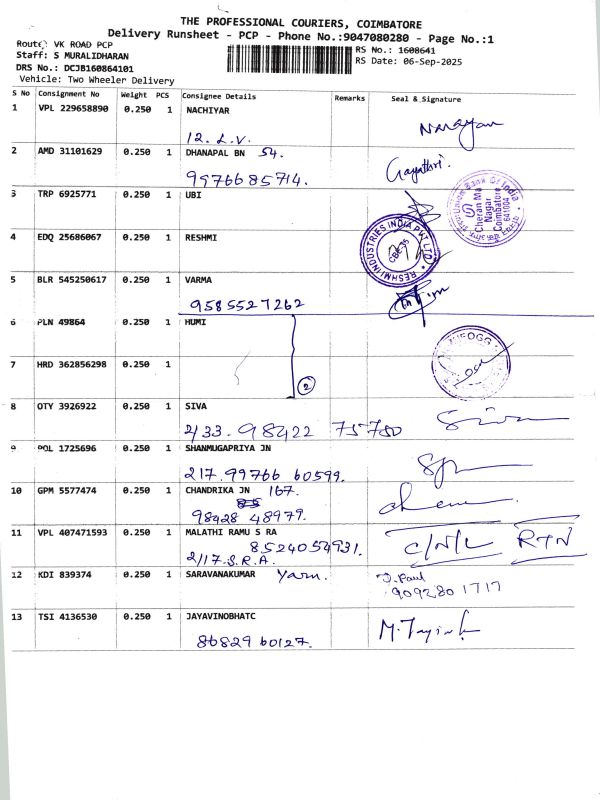 THE PROFESSIONAL COURIERS, COIMBATORE
Delivery Runsheet - PCP - Phone No.:9047080280 - Page No.:1
Route: VK ROAD PCP
RS No.: 1608641
Staff: S MURALIDHARAN
RS Date: 06-Sep-2025
DRS No.: DCJB160864101
Vehicle: Two Wheeler Delivery
S No Consignment No Weight PCS Consignee Details Remarks Seal & Signature
1 VPL 229658890 0.250 1 NACHIYAR
Narayan
12. L.V.
2 AMD 31101629 0.250 1 DHANAPAL BN 54.
Gayathri.
9976685714.
3 TRP 6925771 0.250 1 UBI
Union Bank Of India
Cheran Ma
Nagar
Coimbatore
641004
4 EDQ 25686067 0.250 1 RESHMI
RESHMI INDUSTRIES INDIA PVT LTD
CBE-35
5 BLR 545250617 0.250 1 VARMA
9585527262
6 PLN 49864 0.250 1 HUMI
7 HRD 362856298 0.250 1
2
8 OTY 3926922 0.250 1 SIVA
2/33. 98422 75750
Siva
9 POL 1725696 0.250 1 SHANMUGAPRIYA JN
217. 99766 60599.
10 GPM 5577474 0.250 1 CHANDRIKA JN 167.
98428 48979.
11 VPL 407471593 0.250 1 MALATHI RAMU S RA
8524054931.
C/N/L RTN
2/17. S.R.A.
12 KDI 839374 0.250 1 SARAVANAKUMAR Yarn.
J. Paul
9092801717
13 TSI 4136530 0.250 1 JAYAVINOBHATC
86829 60127.